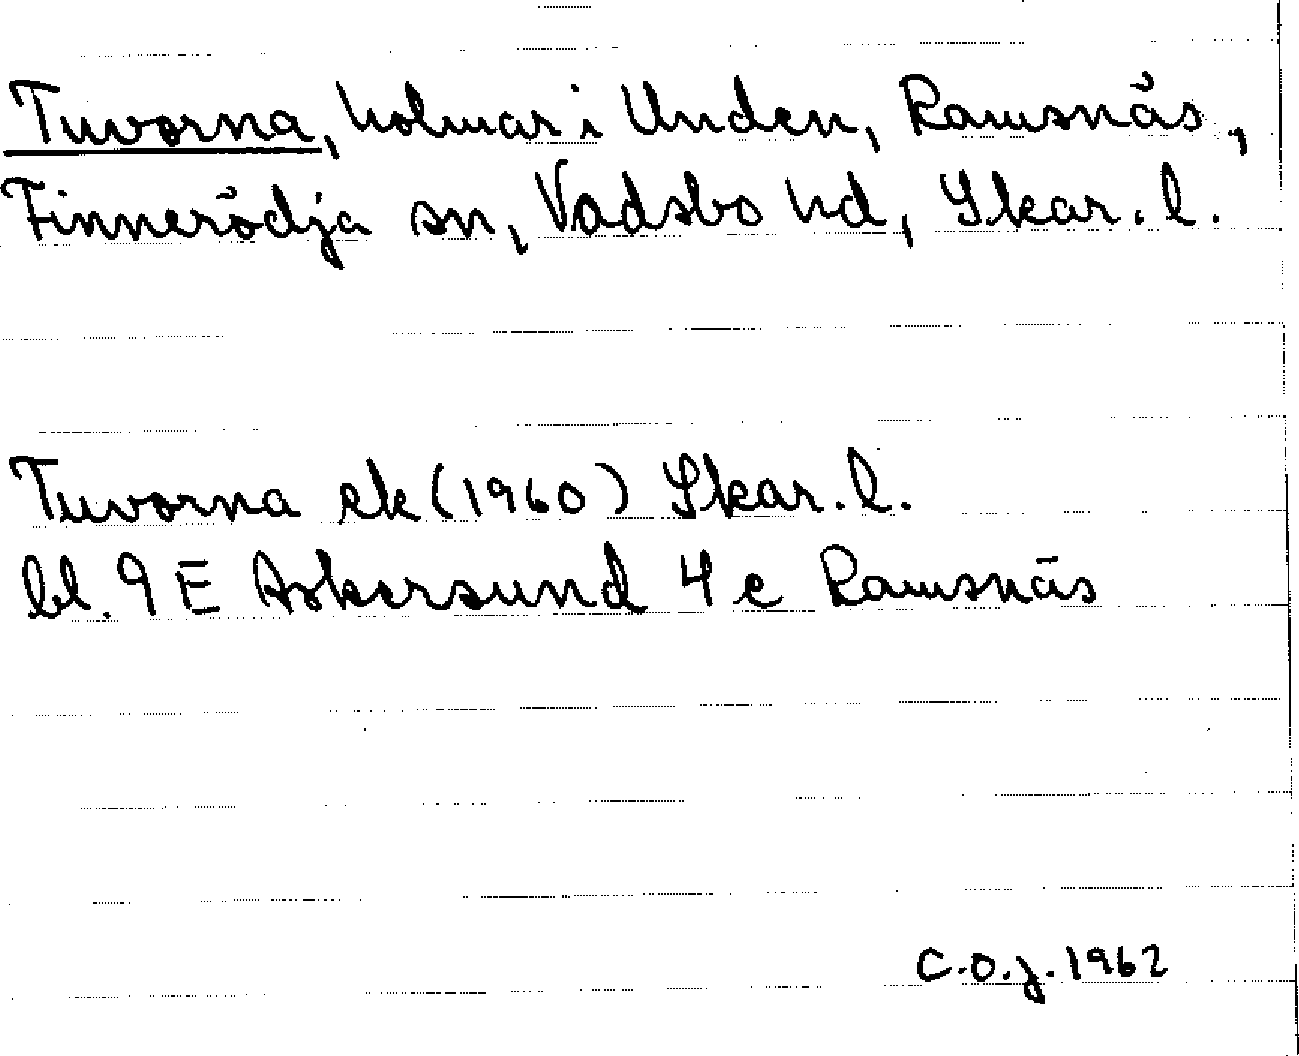 Tuvorna, holmar i Unden, Ramsnäs,
Finnerödja sn, Vadsbo hd, Skar. l.
Tuvorna ek (1960) Skar. l.
bl. 9 E Askersund 4 c Ramsnäs
C.O.J. 1962